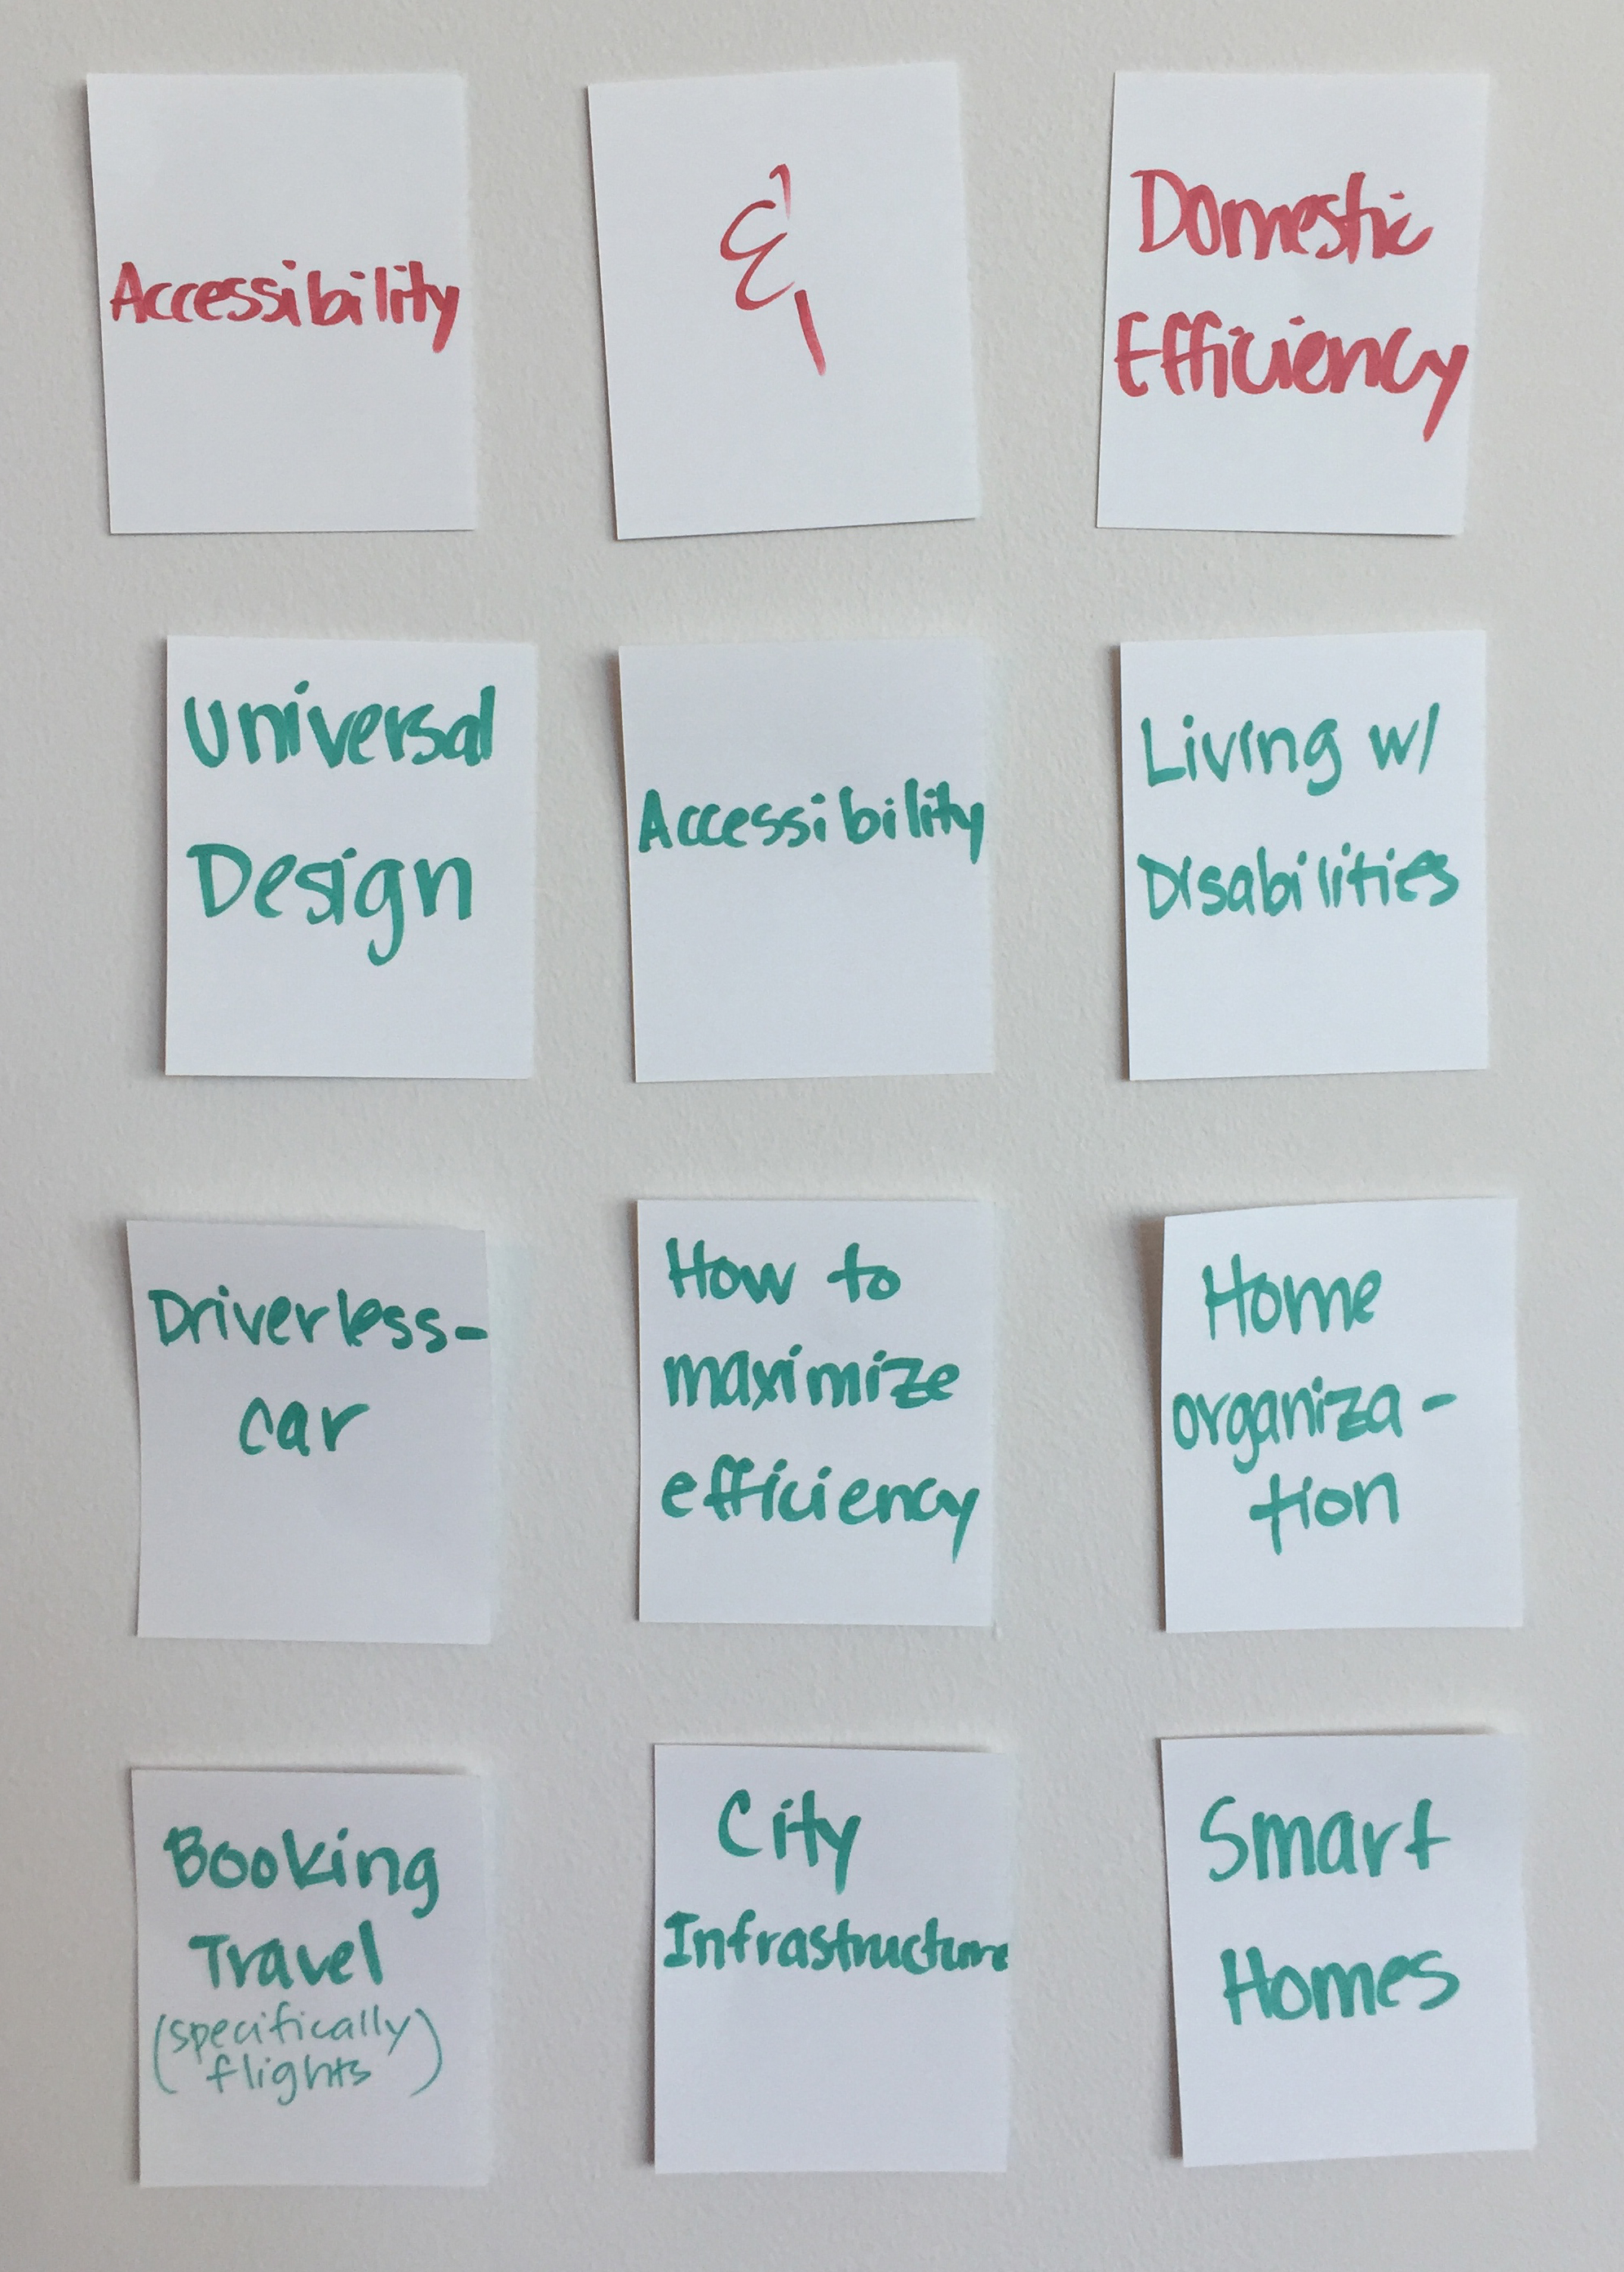 Accessibility
&
Domestic
Efficiency
Universal
Design
Accessibility
Living w/
Disabilities
Driverless-
car
How to
maximize
efficiency
Home
organiza-
tion
Booking
Travel
(specifically
flights)
City
Infrastructure
Smart
Homes